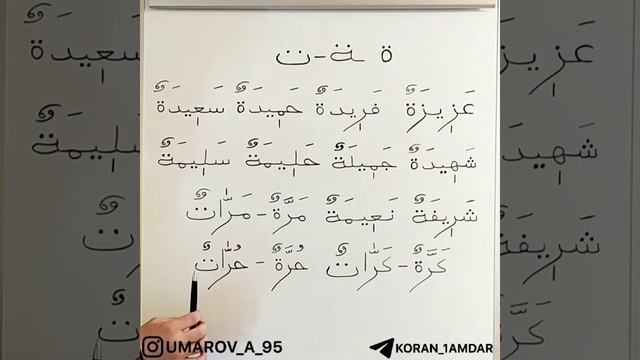 ة ـة - ت
عَزِيزَةٌ فَرِيدَةٌ حَمِيدَةٌ سَعِيدَةٌ
شَهِيدَةٌ جَمِيلَةٌ حَلِيمَةٌ سَلِيمَةٌ
شَرِيفَةٌ نَعِيمَةٌ مَرَّةٌ - مَرَّاتٌ
كَرَّةٌ - كَرَّاتٌ حُرَّةٌ - حُرَّاتٌ
UMAROV_A_95
KORAN_1AMDAR